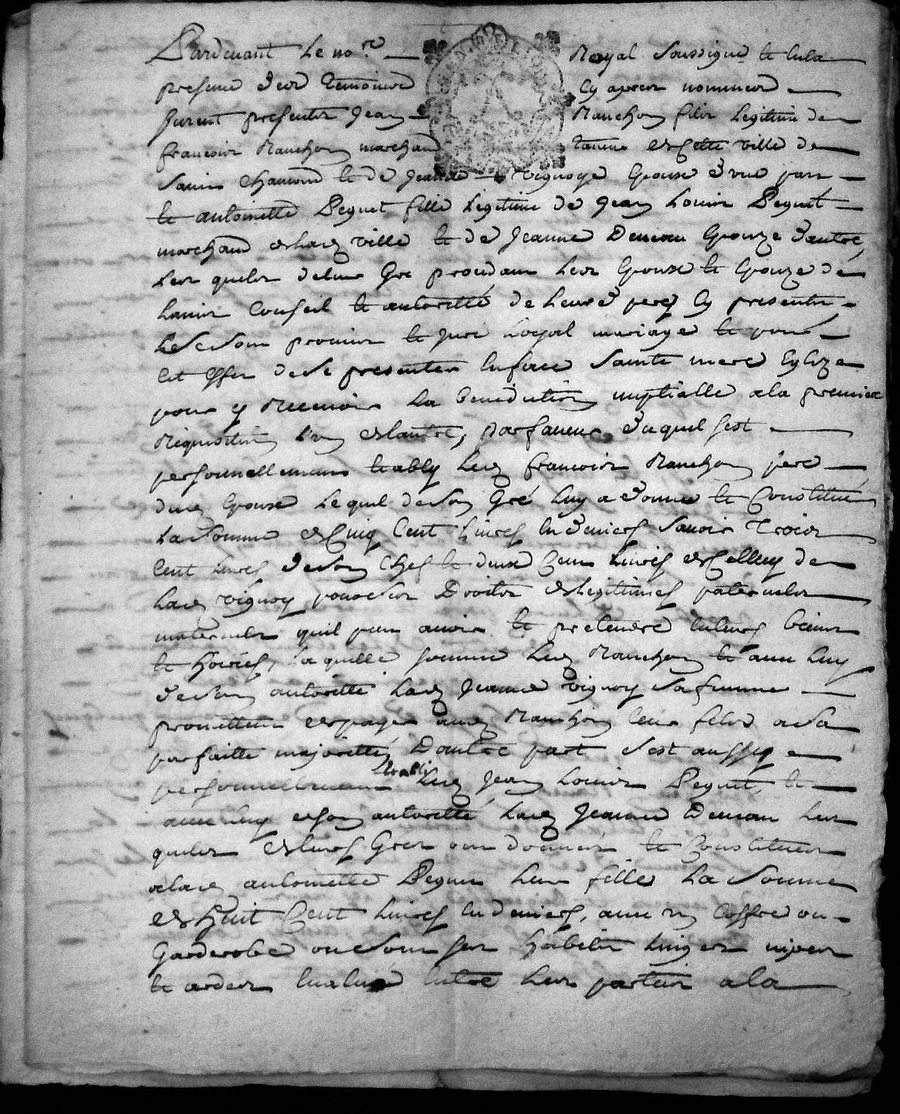 Pardevant le no.re Royal soussigné et en la
presence des temoins cy apres nommes
furent presents Jean Manchon fils legitime de
francois Manchon marchand tanneur de cette ville de
Saint chamond et de Jeanne vignoy Epoux d'une part
et antoinette Peguet fille legitime de Jean Louis Peguet
marchand de lad ville et de Jeanne Deneau Epouze d'autre,
Lesquels de leur gré procedant lesd Epoux et Epouze de
Lavis Conseil et autorité de leurs peres cy presents
se sont promis et juré Loyal mariage et pour
cet effet de se presenter en face sainte mere Eglize
pour y Recevoir la benediction nuptialle a la premiere
Requisition l'un de lautre, par faveur duquel sest
personnellement etably led francois Manchon pere
dud Epoux lequel de son gré luy a donné et Constitué
La somme de Cinq Cent livres en deniers savoir Trois
Cent livres de son chef et deux Cent livres de Celluy de
lad vignoy pour ses Droits de legitimes paternels
maternels quil peut avoir et pretendre en leurs biens
et hoiries, laquelle somme led Manchon et avec luy
de son autorité lad Jeanne vignoy sa femme
promettent de payer aud Manchon leur fils a sa
parfaitte majorité, Dautre part s'est aussy
personnellement Etably led Jean Louis Peguet, et
avec luy de son autorité lad Jeanne Deneau les
quels de leurs Grés ont donnés et Constitués
a lad antoinette Peguet leur fille la Somme
de Huit Cent livres en deniers, avec un Coffre ou
Garderobe ou sont ses habits linges nipes
et ardes evalué entre les parties a la